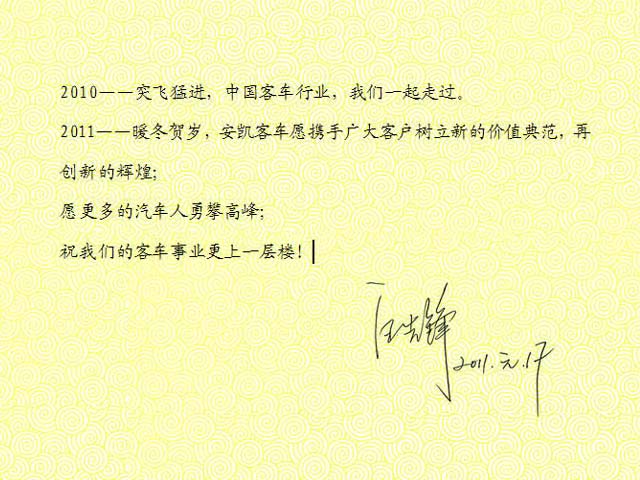 2010——突飞猛进，中国客车行业，我们一起走过。
2011——暖冬贺岁，安凯客车愿携手广大客户树立新的价值典范，再
创新的辉煌；
愿更多的汽车人勇攀高峰；
祝我们的客车事业更上一层楼！
汪先锋
2011.元.17